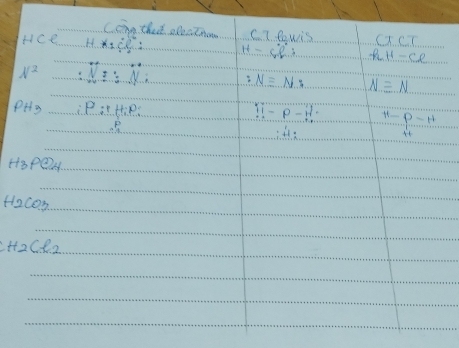 Công thức electron CT lewis CTCT
HCl H : Cl : H - Cl : H - Cl
N2 : N :: N : : N ≡ N : N ≡ N
PH3 H - P - H H - P - H
H H
H3PO4
H2CO3
CH2Cl2